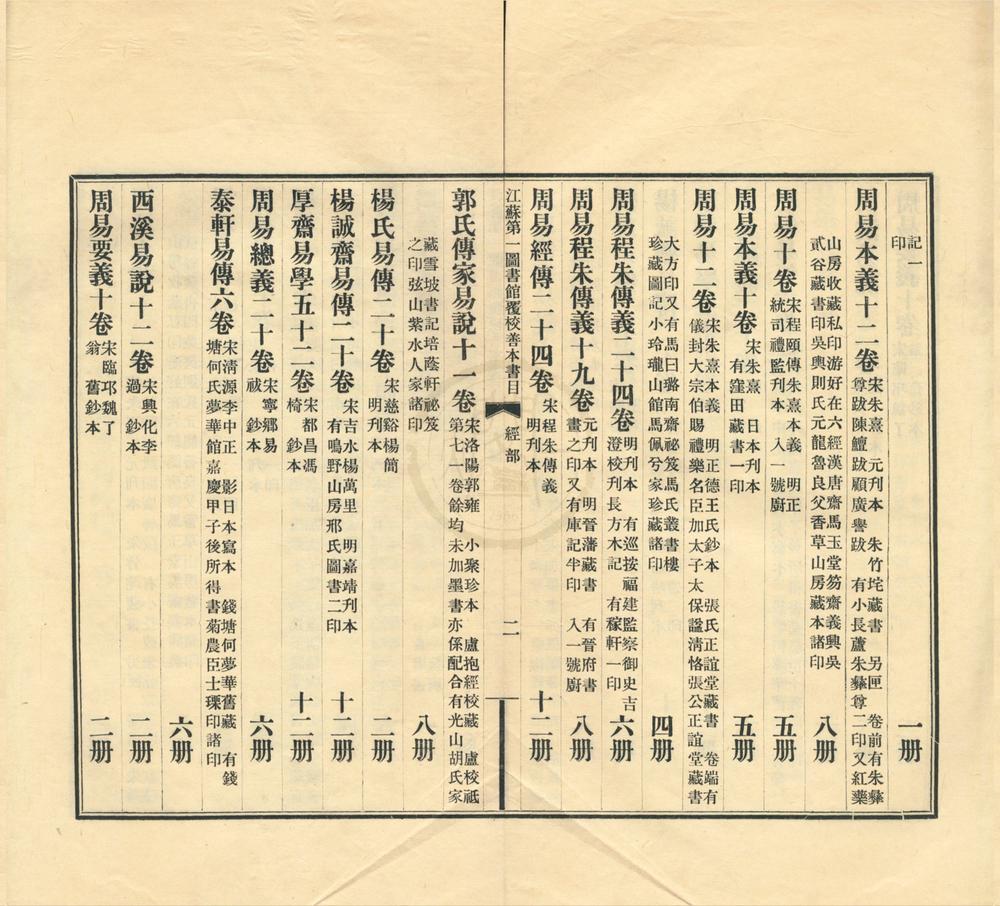 記一印 一册
周易本義十二卷 宋朱熹 元刋本 朱竹垞藏書 另匣 卷前有朱彝尊跋陳鱣跋顧廣譽跋 有小長蘆朱彝尊二印又紅藥
山房收藏私印游好在六經漢唐齋馬玉堂笏齋義興吳貳谷藏書印吳興則氏元龍魯良父香草山房藏本諸印 八册
周易十卷 宋程頤傳朱熹本義 明正統司禮監刋本 入一號廚 五册
周易本義十卷 宋朱熹 日本刋本 有窪田藏書一印 五册
周易十二卷 宋朱熹本義 明正德王氏鈔本 張氏正誼堂藏書 卷端有儀封大宗伯賜禮樂名臣加太子太保諡淸恪張公正誼堂藏書
大方印又有馬曰璐南齋祕笈馬氏叢書樓珍藏圖記小玲瓏山館馬佩兮家珍藏諸印 四册
周易程朱傳義二十四卷 明刋本 有巡按福建監察御史吉澄校刋長方木記 有稼軒一印 六册
周易程朱傳義十九卷 元刋本 明晉藩藏書 有晉府書畫之印又有庫記半印 入一號廚 八册
周易經傳二十四卷 宋程朱傳義 明刋本 十二册
江蘇第一圖書館覆校善本書目 經部 二
郭氏傳家易說十一卷 宋洛陽郭雍 小聚珍本 盧抱經校藏 盧校祗第七一卷餘均未加墨書亦係配合有光山胡氏家
藏雪坡書記培蔭軒祕笈之印弦山紫水人家諸印 八册
楊氏易傳二十卷 宋慈谿楊簡 明刋本 二册
楊誠齋易傳二十卷 宋吉水楊萬里 明嘉靖刋本 有鳴野山房邢氏圖書二印 十二册
厚齋易學五十二卷 宋都昌馮椅 鈔本 十二册
周易總義二十卷 宋寧鄉易祓 鈔本 六册
泰軒易傳六卷 宋淸源李中正 影日本寫本 錢塘何夢華舊藏 有錢塘何氏夢華館嘉慶甲子後所得書菊農臣士瑮印諸印
六册
西溪易說十二卷 宋興化李過 鈔本 二册
周易要義十卷 宋臨邛魏了翁 舊鈔本 二册